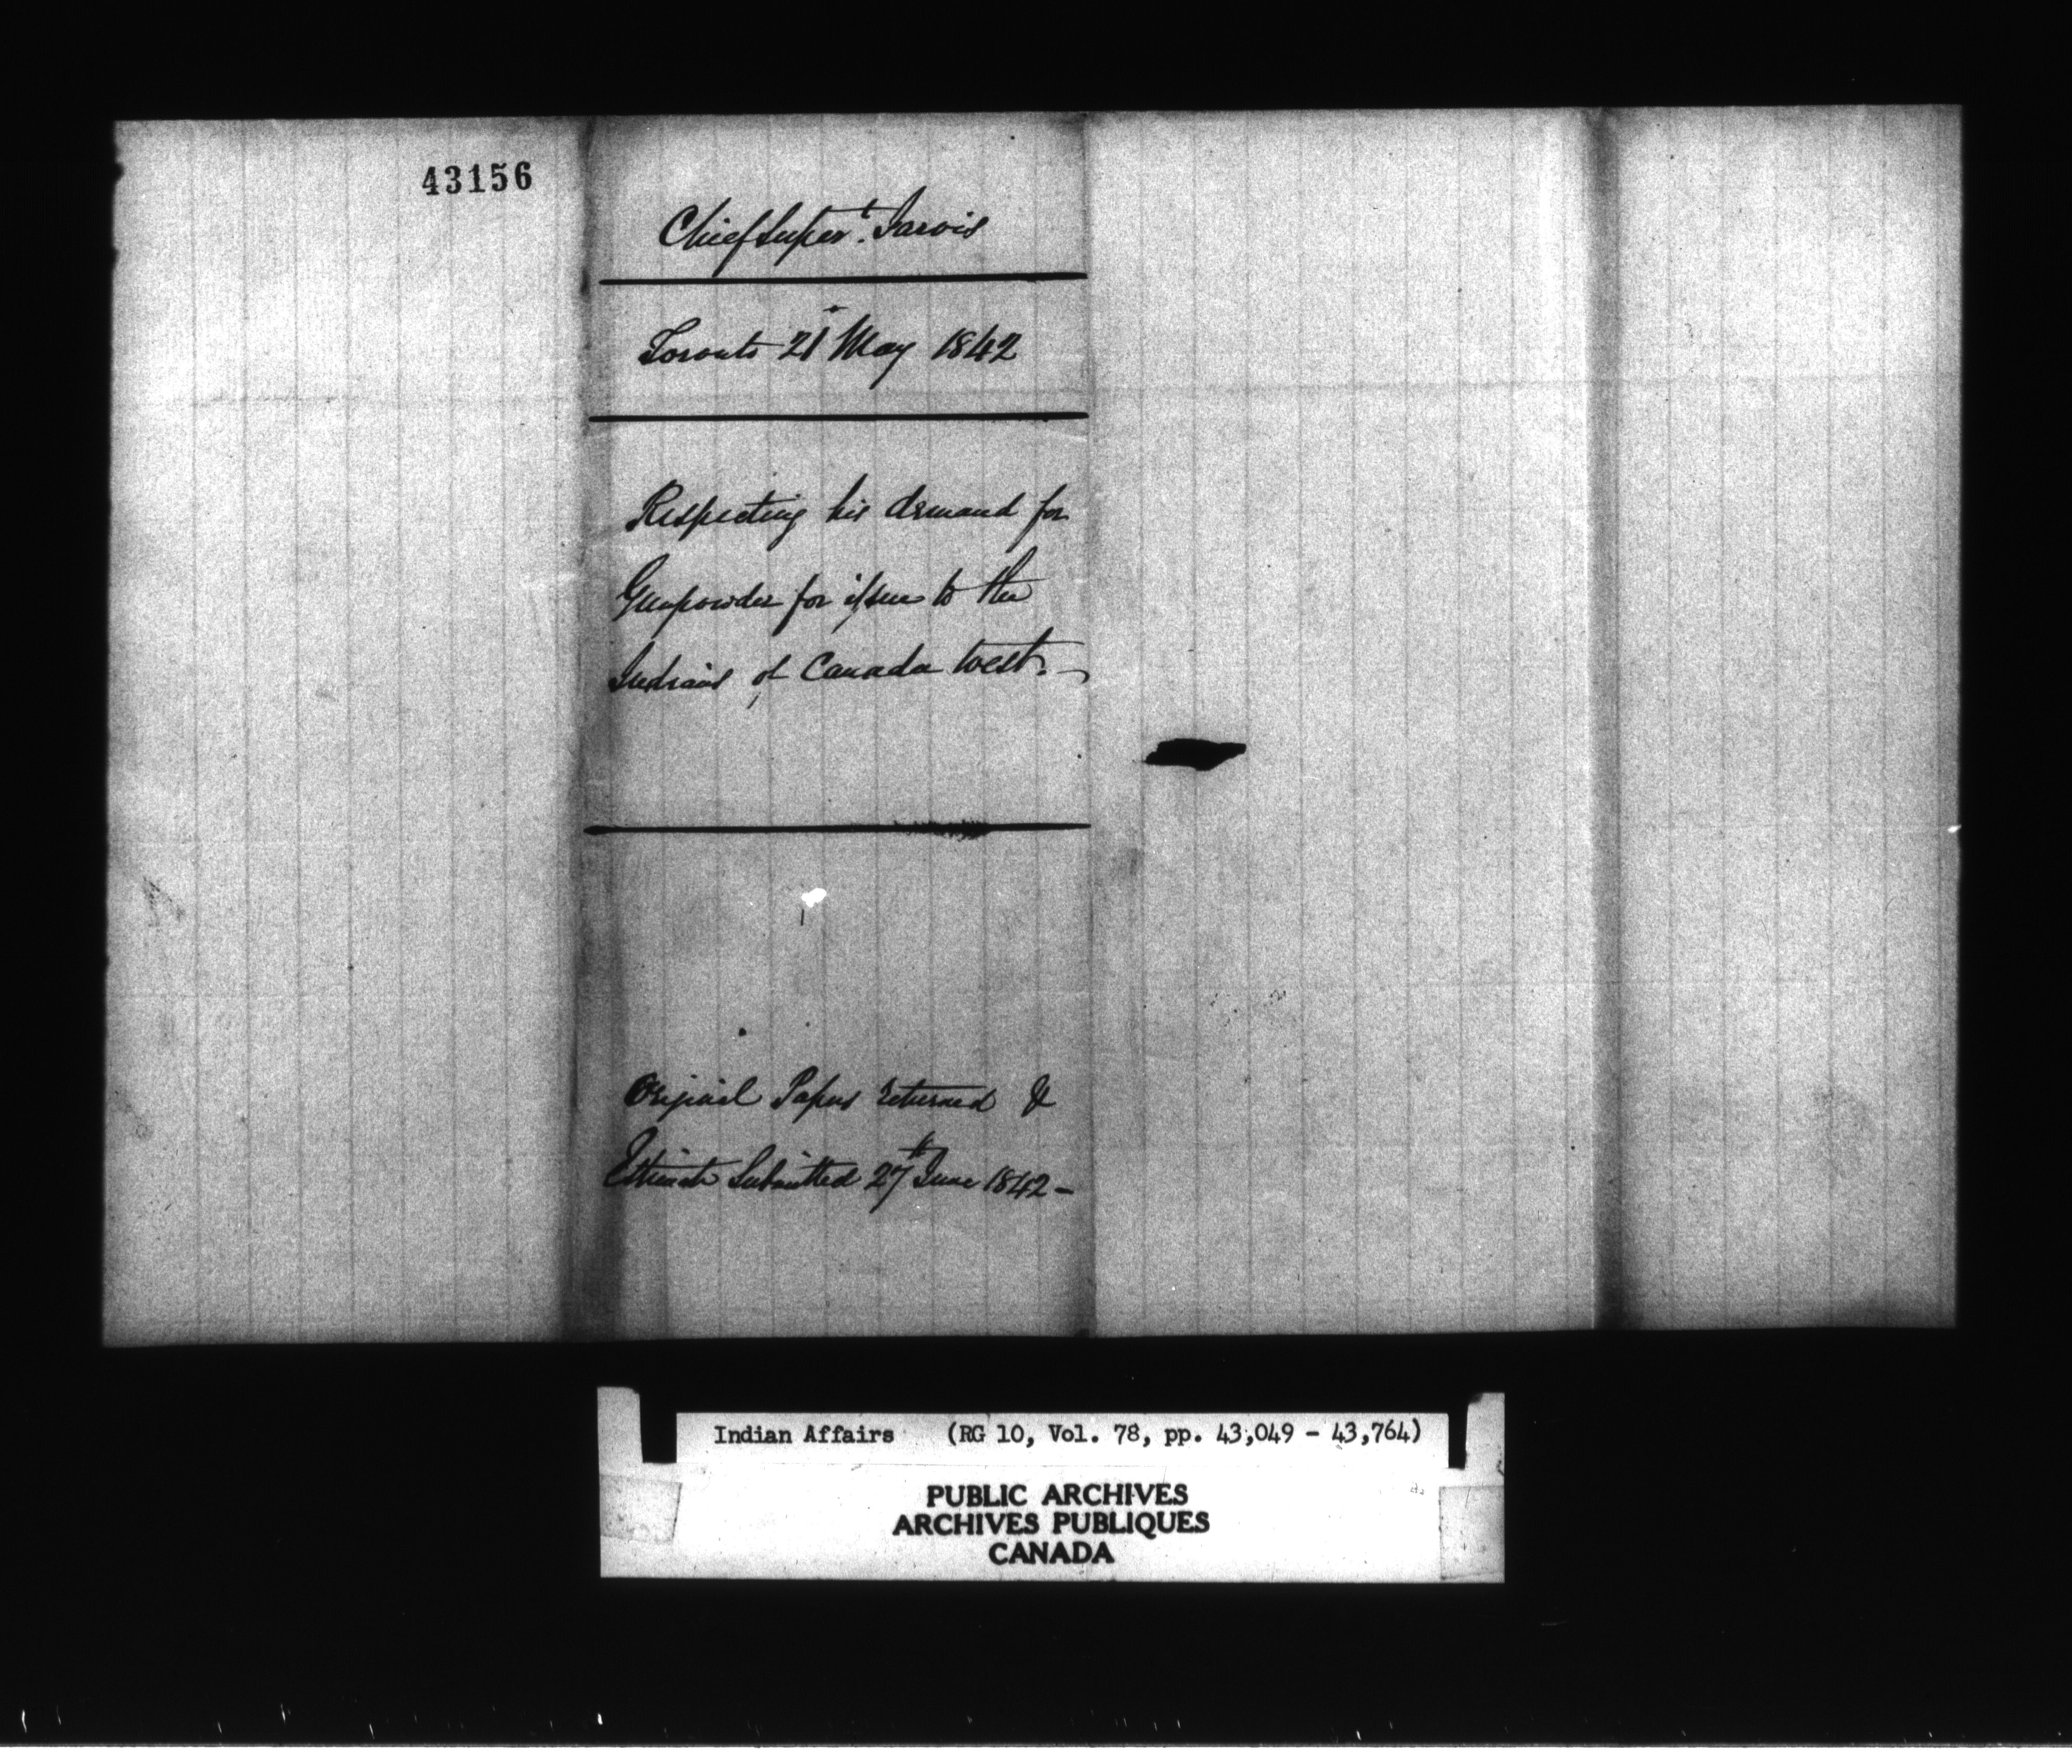 43156
Chief Super.t Jarvis
Toronto 21st May 1842
Respecting his demand for
Gunpowder for issue to the
Indians of Canada West.
Original Papers returned &
Estimate Submitted 27th June 1842 -
Indian Affairs (RG 10, Vol. 78, pp. 43,049 - 43,764)
PUBLIC ARCHIVES
ARCHIVES PUBLIQUES
CANADA